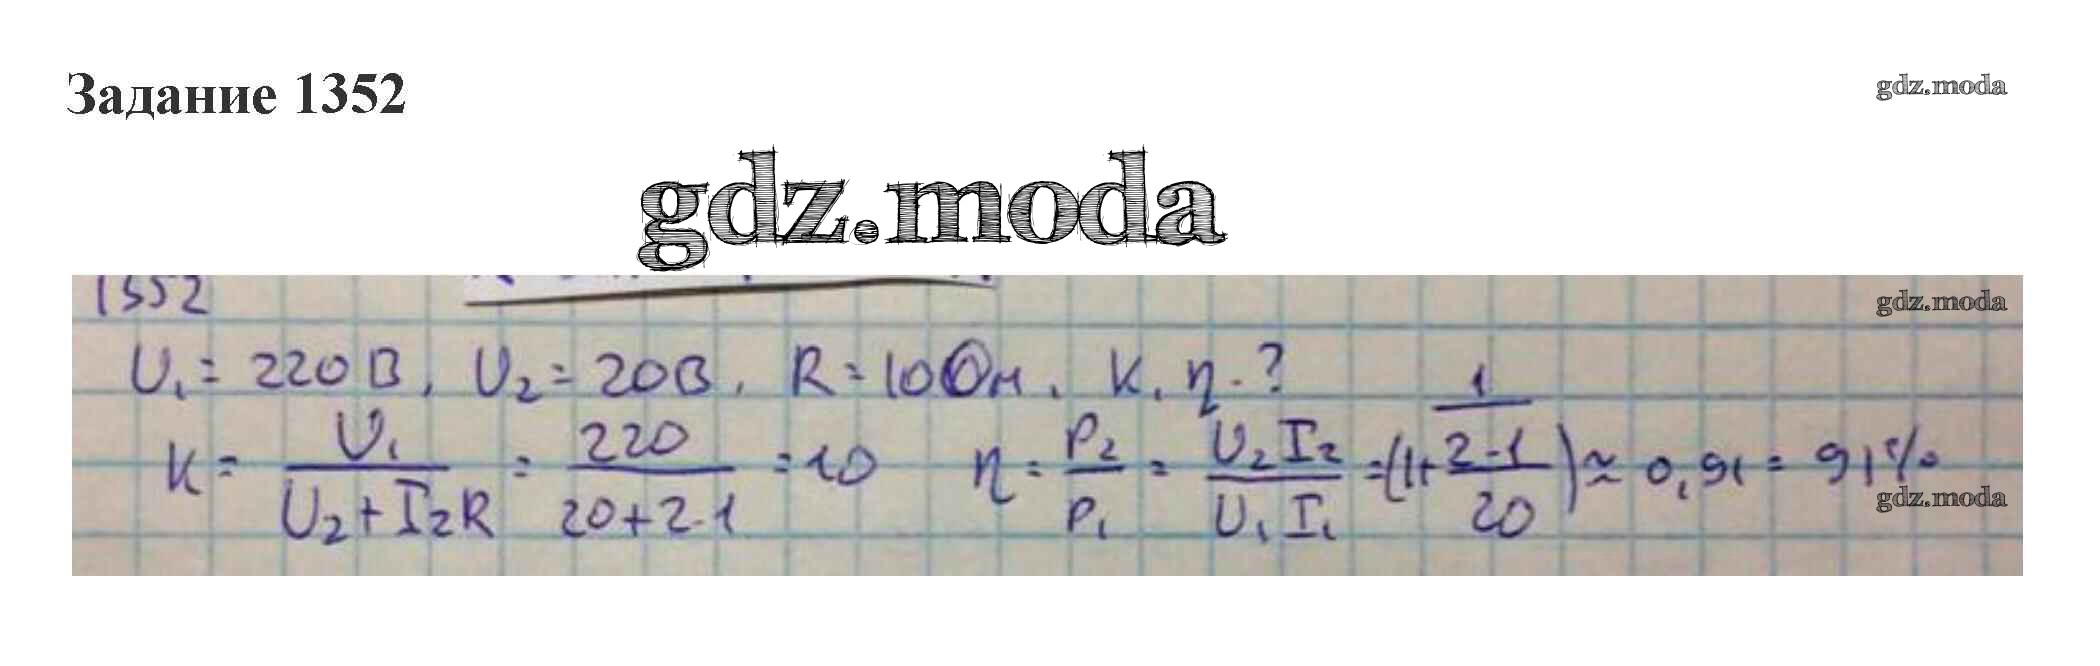 Задание 1352
gdz.moda
gdz.moda
1352
gdz.moda
U₁ = 220В, U₂ = 20В, R = 10 Ом, K, η - ?
K = U₁ / (U₂ + I₂R) = 220 / (20 + 2·1) = 10 η = P₂ / P₁ = U₂I₂ / U₁I₁ = 1 / (1 + 2·1 / 20) ≈ 0,91 = 91%
gdz.moda